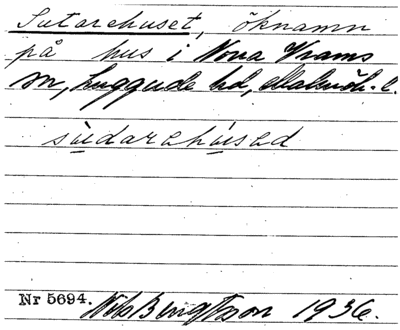 Sutarehuset, öknamn
på hus i Nora Vrams
sn, Luggude hd, Malmöh. l.
sùdarehúsed
Nr 5694. Nils Bengtsson 1936.